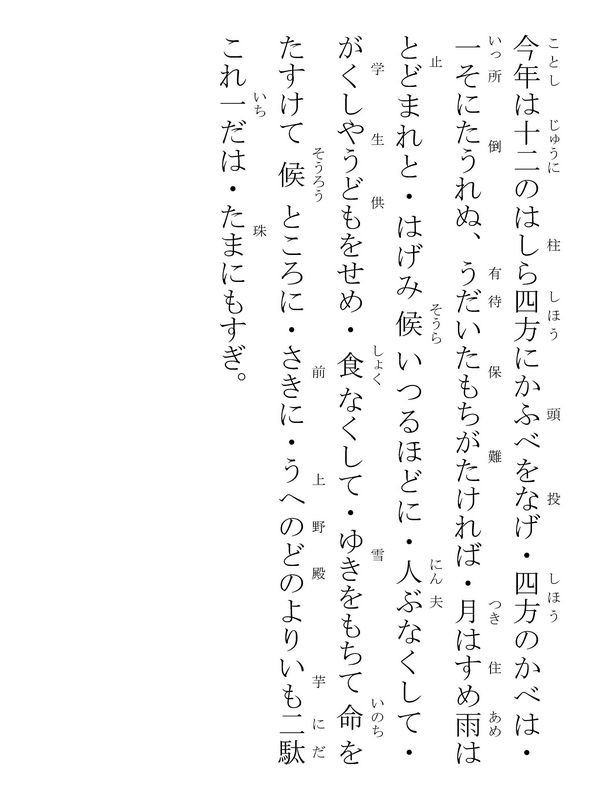 今年は十二のはしら四方にかふべをなげ・四方のかべは・
一そにたうれぬ、うだいたもちがたければ・月はすめ雨は
とどまれと・はげみ候いつるほどに・人ぶなくして・
がくしやうどもをせめ・食なくして・ゆきをもちて命を
たすけて候ところに・さきに・うへのどのよりいも二駄
これ一だは・たまにもすぎ。